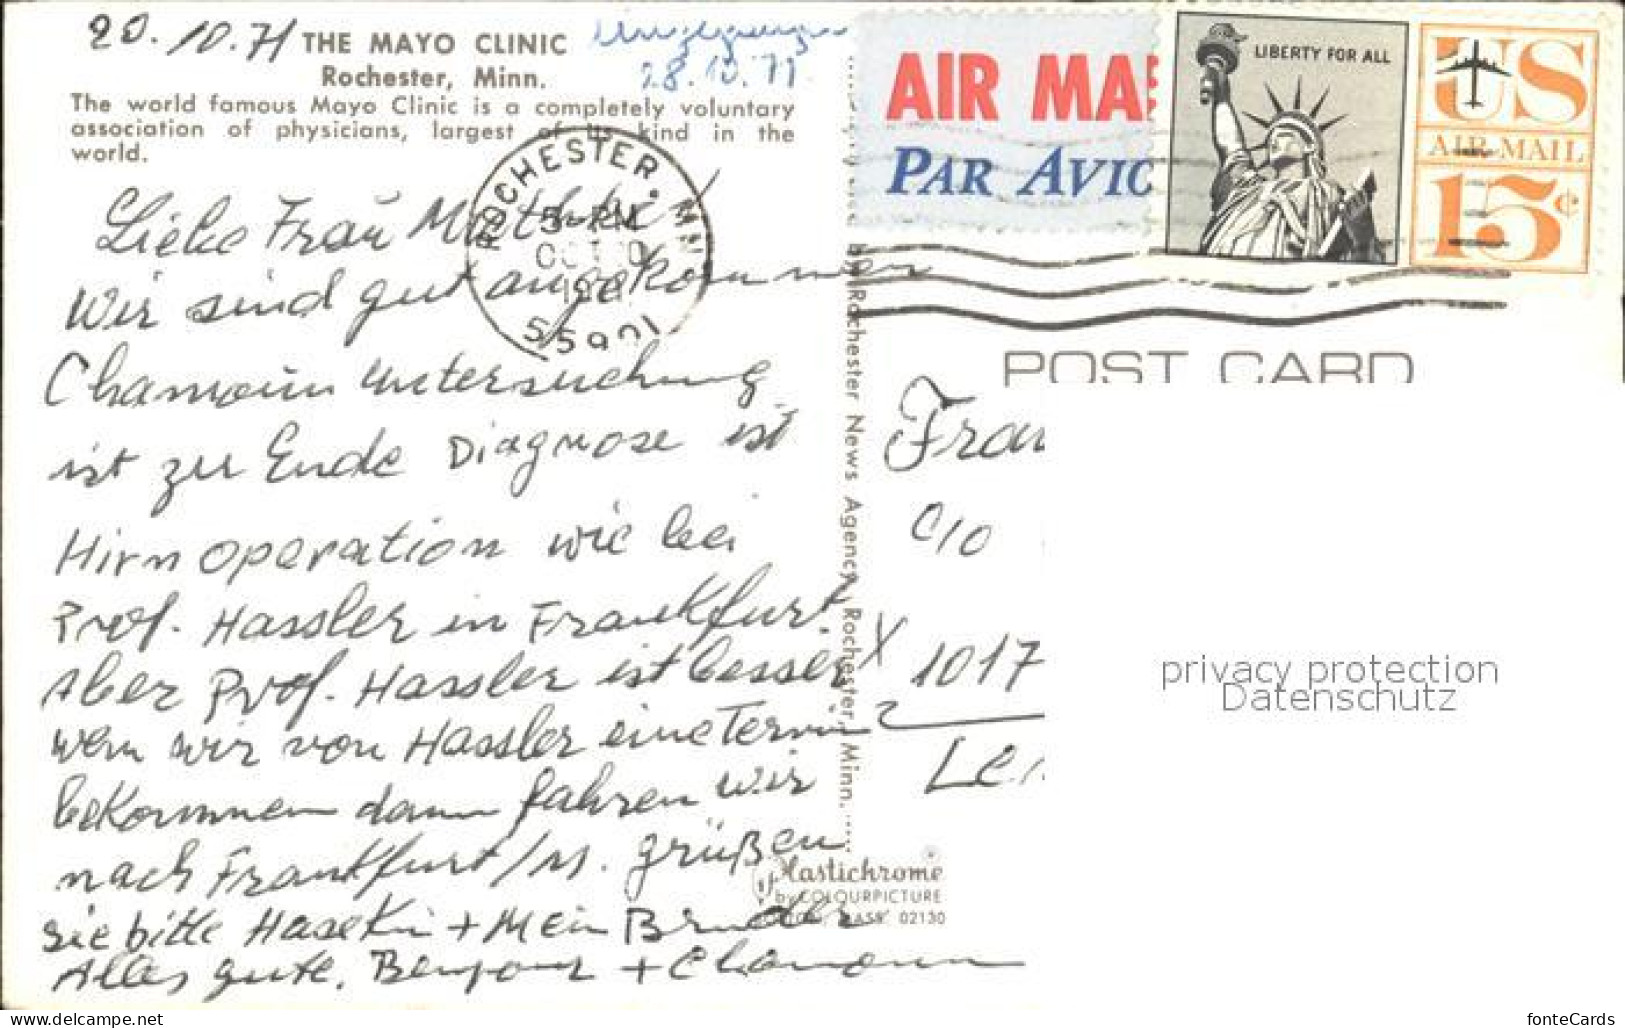 20.10.71
THE MAYO CLINIC
Rochester, Minn.
28.10.71
The world famous Mayo Clinic is a completely voluntary
association of physicians, largest of its kind in the
world.
ROCHESTER, MINN
5 PM
OCT 20
55901
AIR MA
PAR AVIO
LIBERTY FOR ALL
US
AIR MAIL
15¢
POST CARD
Liebe Frau
Wir sind gut angekommen
Chamoun untersuchung
ist zu Ende Diagnose ist
Hirn operation wie bei
Prof. Hassler in Frankfurt.
Aber Prof. Hassler ist besser
wen wir von Hassler eine Termin
bekommen dann fahren wir
nach Frankfurt/M. grüßen
sie bitte Hasekin + Mein Bruder
Alles gute. + Chamoun
Fra
C/O
1017
Rochester News Agency, Rochester, Minn.
Plastichrome
by COLOURPICTURE
BOSTON, MASS. 02130
privacy protection
Datenschutz
www.delcampe.net
fonteCards